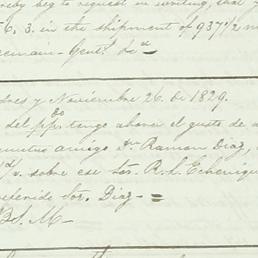 beg to request in writing, that
6, 3. in the shipment of 937½
remain - Gent.
y Noviembre 26. de 1829.
del ppdo tengo ahora el gusto de
amigo Dn Ramon Diaz,
sobre ese Sor. R. L. Echenique
referido Sor. Diaz =
M =